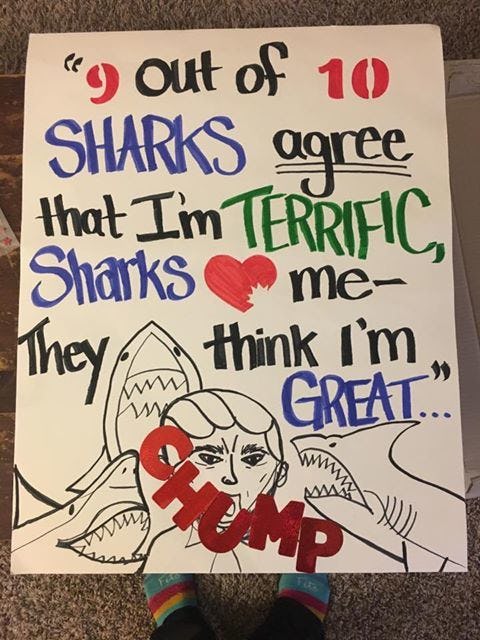 "9 out of 10
SHARKS agree
that I'm TERRIFIC,
Sharks me-
They think I'm
GREAT..."
CHUMP